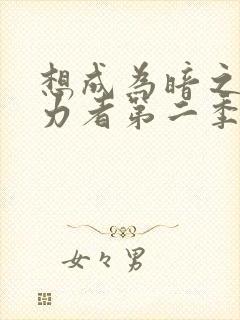 想成为暗之
力者第二季
女々男